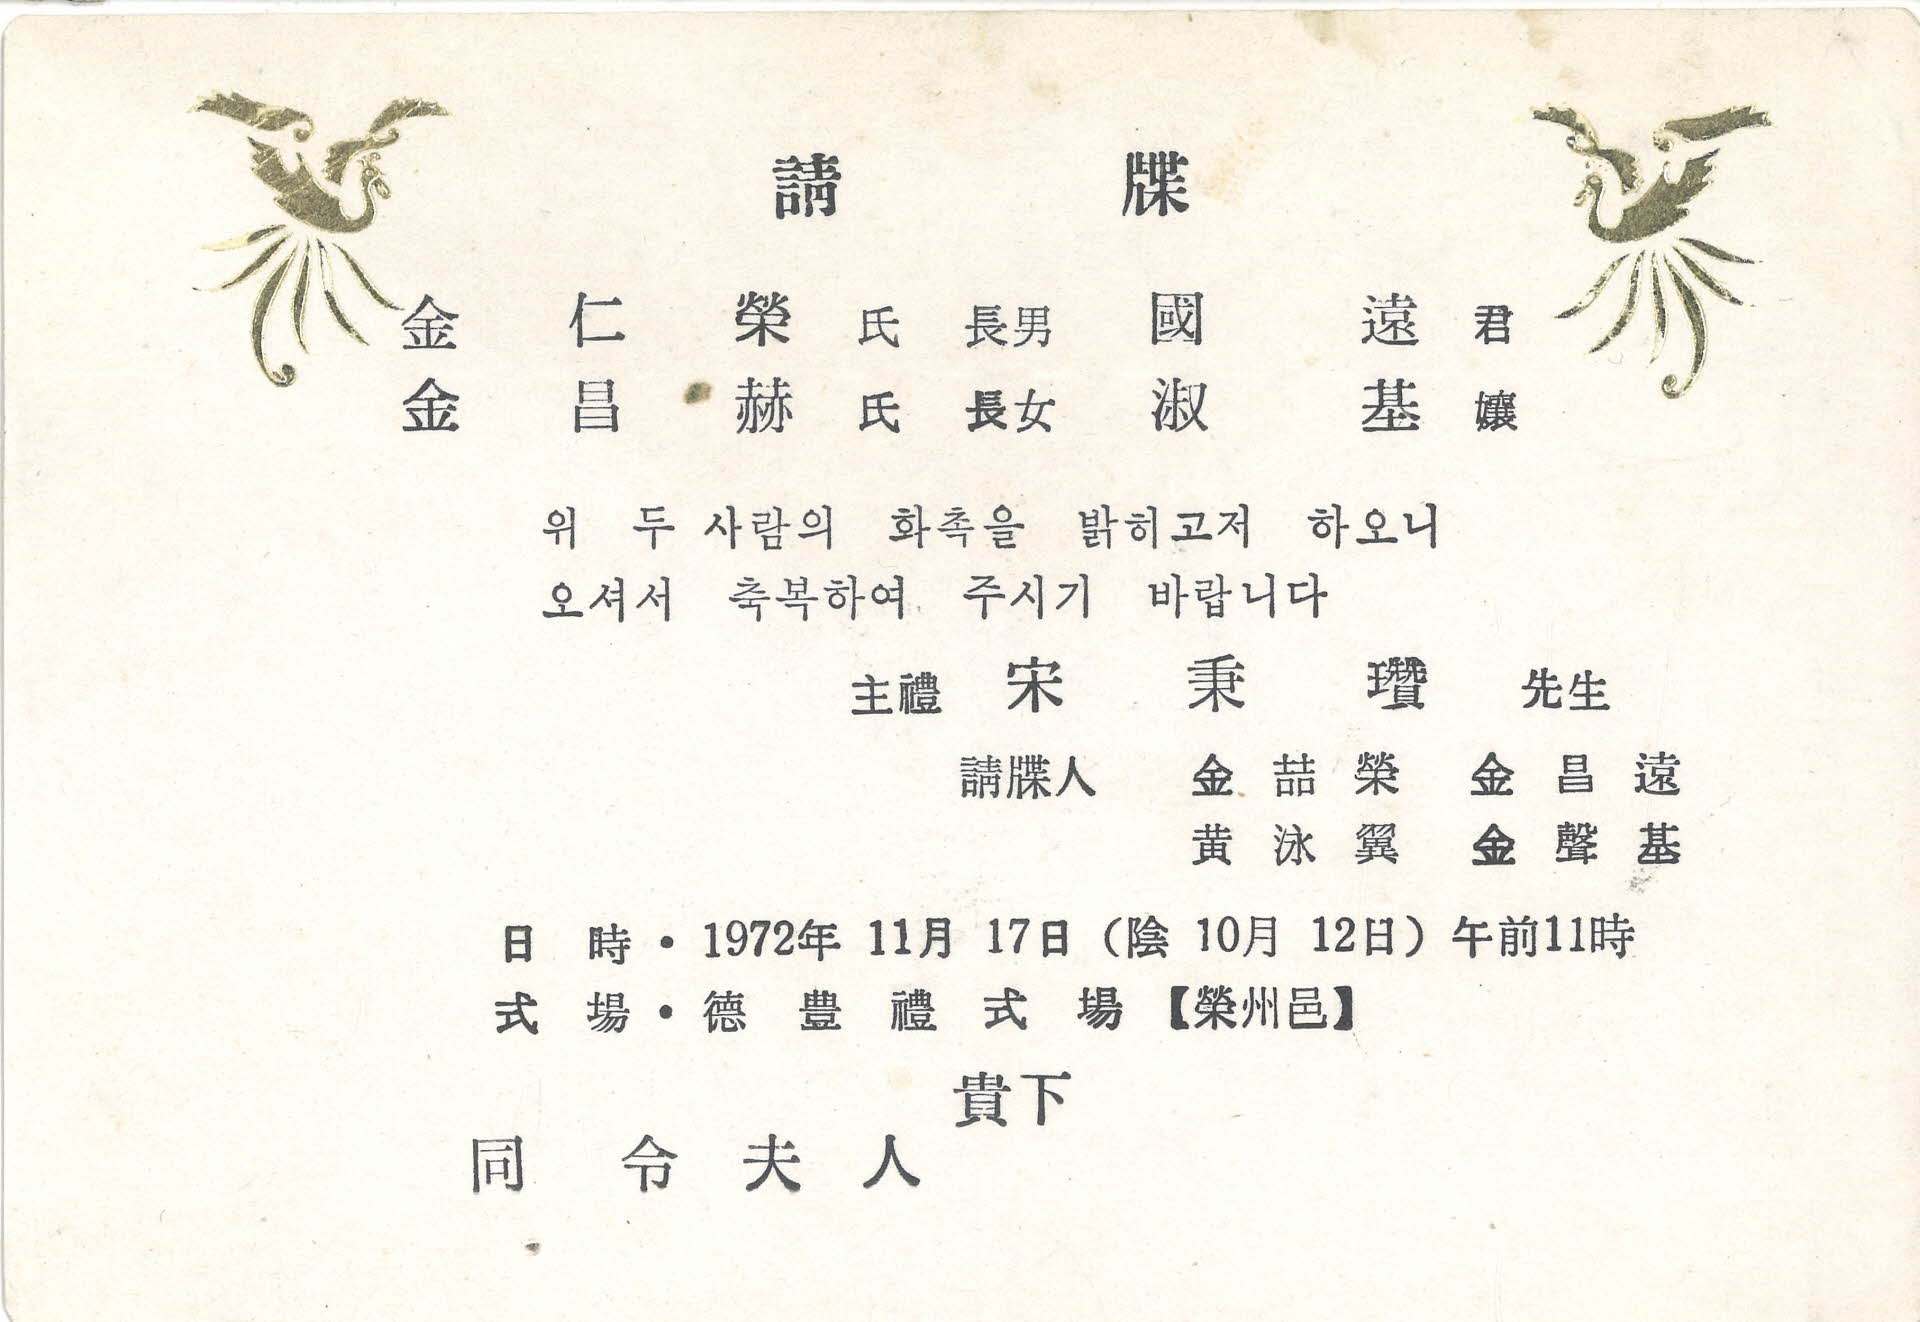 請牒
金仁榮氏 長男 國遠君
金昌赫氏 長女 淑基孃
위 두 사람의 화촉을 밝히고저 하오니
오셔서 축복하여 주시기 바랍니다
主禮 宋秉瓚 先生
請牒人 金喆榮 金昌遠
黄泳翼 金聲基
日時・1972年 11月 17日 (陰 10月 12日) 午前11時
式場・德豊禮式場【榮州邑】
貴下
同令夫人